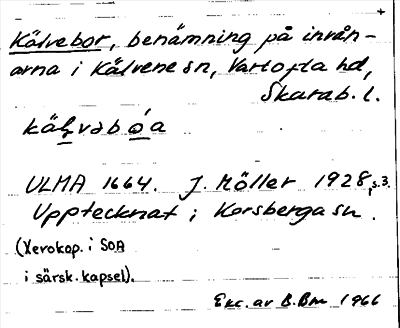 +
Kälvebor, benämning på invån-
arna i Kälvene sn, Vartofta hd,
Skarab. l.
ULMA 1664. J. Möller 1928, s.3.
Upptecknat i Korsberga sn.
(Xerokop. i SOA
i särsk. kapsel).
Exc. av B.Bm 1966